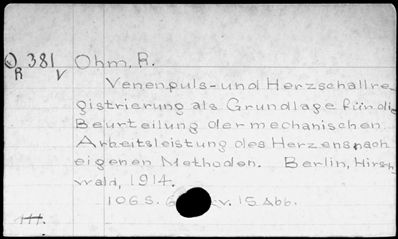 O 381 Ohm, R.
R V
Venenpuls- und Herzschallre-
gistrierung als Grundlage für die
Beurteilung der mechanischen
Arbeitsleistung des Herzens nach
eigenen Methoden. Berlin, Hirsch-
wald, 1914.
106 S. v. 15 Abb.